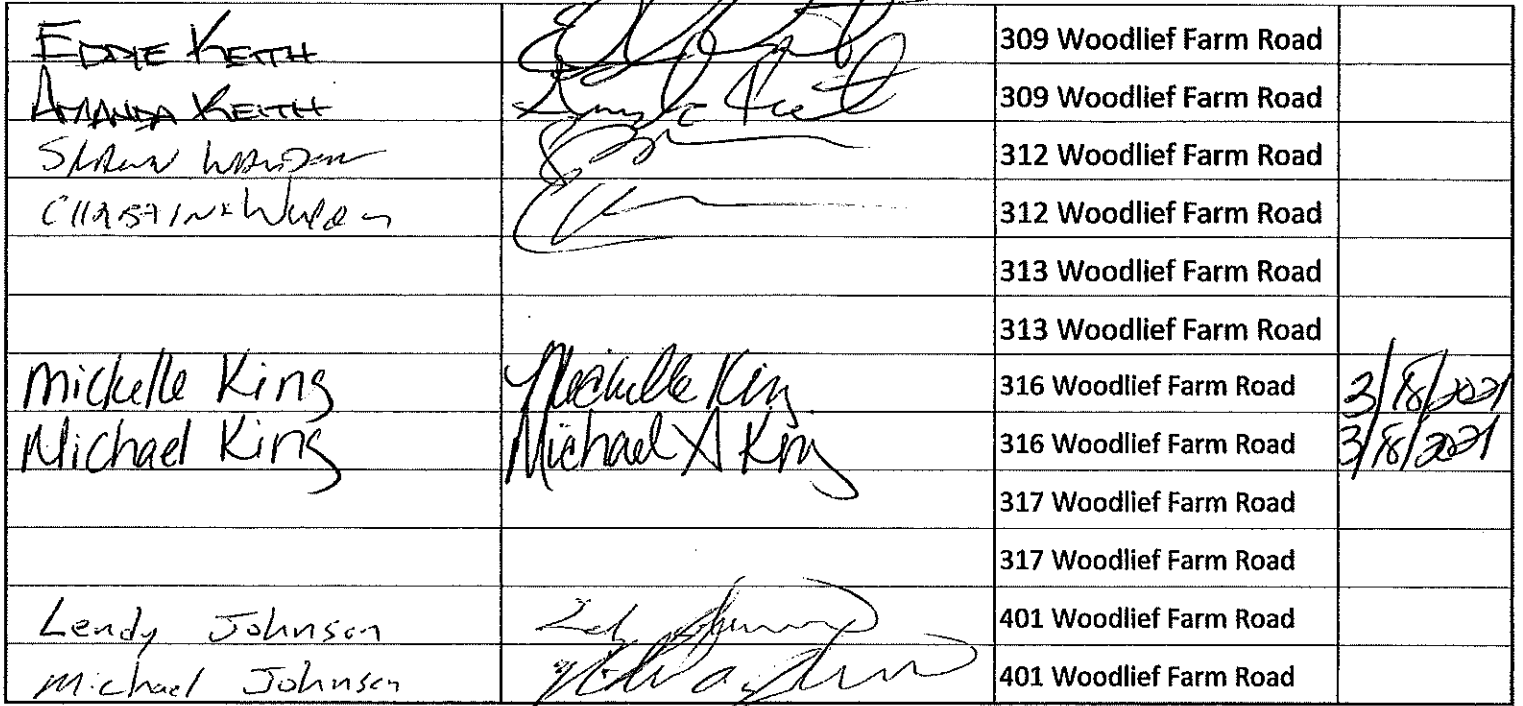 EDDIE KEITH 309 Woodlief Farm Road
AMANDA KEITH 309 Woodlief Farm Road
312 Woodlief Farm Road
CHRISTINE 312 Woodlief Farm Road
313 Woodlief Farm Road
313 Woodlief Farm Road
Michelle King Michelle King 316 Woodlief Farm Road 3/18/2021
Michael King Michael A King 316 Woodlief Farm Road 3/18/2021
317 Woodlief Farm Road
317 Woodlief Farm Road
Lendy Johnson 401 Woodlief Farm Road
Michael Johnson 401 Woodlief Farm Road